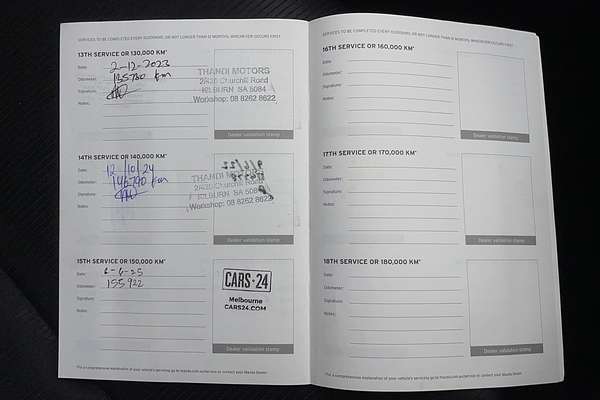 SERVICES TO BE COMPLETED EVERY 10,000KMS, OR NOT LONGER THAN 12 MONTHS, WHICHEVER OCCURS FIRST
13TH SERVICE OR 130,000 KM*
Date: 2-12-2023
Odometer: 135780 Km
Signature:
Notes:
THANDI MOTORS
Churchill Road
KILBURN SA 5084
Workshop: 08 8262 8622
Dealer validation stamp
14TH SERVICE OR 140,000 KM*
Date: 12/10/24
Odometer: 146790 Km
Signature:
Notes:
THANDI MOTORS
Churchill Road
KILBURN SA 5084
Workshop: 08 8262 8622
Dealer validation stamp
15TH SERVICE OR 150,000 KM*
Date: 6-6-25
Odometer: 155922
Signature:
Notes:
CARS•24
Melbourne
CARS24.COM
Dealer validation stamp
SERVICES TO BE COMPLETED EVERY 10,000KMS, OR NOT LONGER THAN 12 MONTHS, WHICHEVER OCCURS FIRST
16TH SERVICE OR 160,000 KM*
Date:
Odometer:
Signature:
Notes:
Dealer validation stamp
17TH SERVICE OR 170,000 KM*
Date:
Odometer:
Signature:
Notes:
Dealer validation stamp
18TH SERVICE OR 180,000 KM*
Date:
Odometer:
Signature:
Notes:
Dealer validation stamp